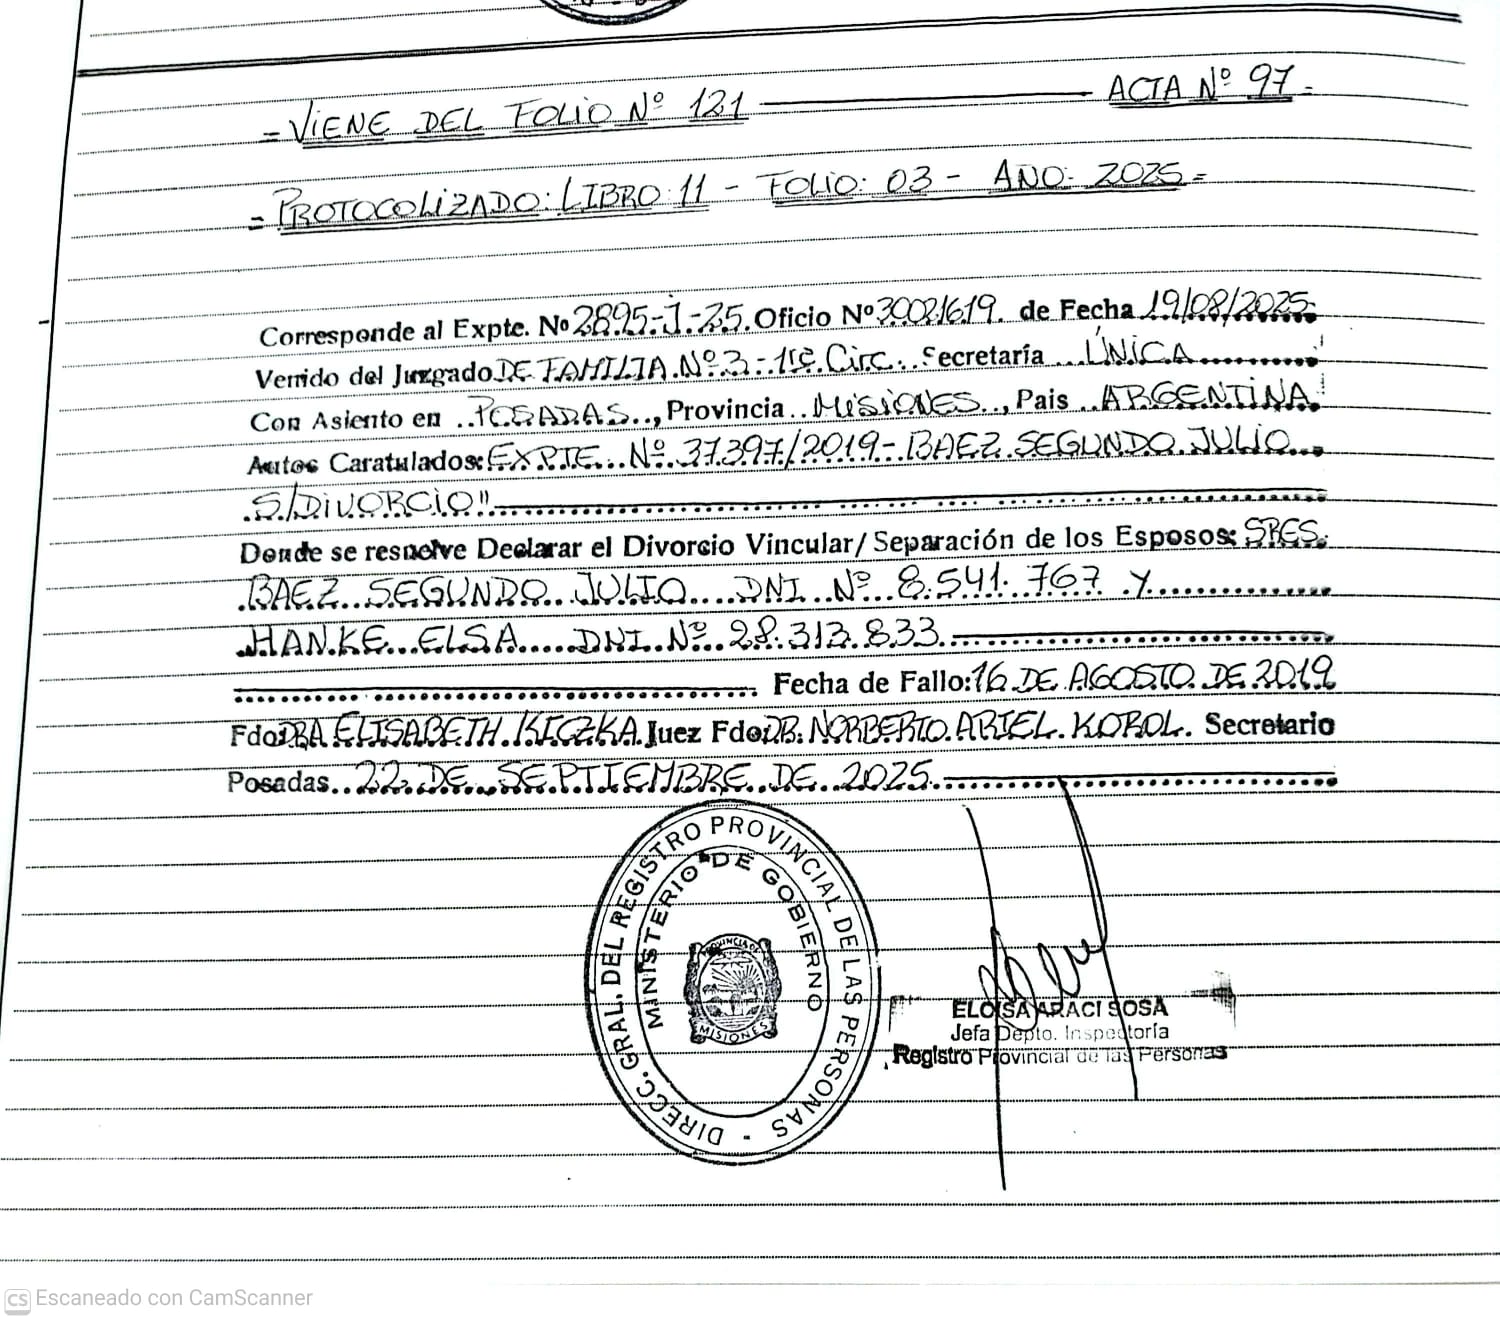 = VIENE DEL FOLIO Nº 121 ——— ACTA Nº 97 =
= PROTOCOLIZADO: LIBRO: 11 - FOLIO: 03 - AÑO: 2025 =
Corresponde al Expte. No 2895-J-25. Oficio Nº 30021619. de Fecha 19/08/2025
Venido del Juzgado DE FAMILIA Nº 3 - 1re. Circ. Secretaría ÚNICA
Con Asiento en POSADAS, Provincia MISIONES, Pais ARGENTINA
Autos Caratulados: EXPTE Nº 37397/2019 - BAEZ SEGUNDO JULIO
S/DIVORCIO"
Donde se resuelve Declarar el Divorcio Vincular/Separación de los Esposos: SRES.
BAEZ SEGUNDO JULIO DNI Nº 8.541.767 Y
HANKE ELSA DNI Nº 28.313.833.
Fecha de Fallo: 16 DE AGOSTO DE 2019
Fdo: DRA ELISABETH KICZKA Juez Fdo: DR. NORBERTO ARIEL KOROL. Secretario
Posadas 22 DE SEPTIEMBRE DE 2025.
DIRECC. GRAL. DEL REGISTRO PROVINCIAL DE LAS PERSONAS -
MINISTERIO DE GOBIERNO
PROVINCIA DE
MISIONES
ELOISA ARACI SOSA
Jefa Depto. Inspectoría
Registro Provincial de las Personas
CS Escaneado con CamScanner